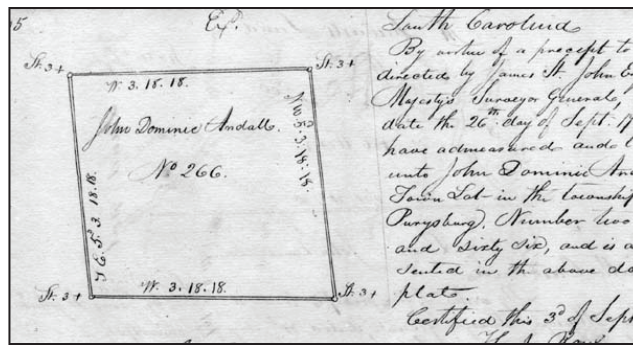 Ex.
St. 3+
St. 3+
W. 3. 18. 18.
John Dominic Andall.
No 266.
St. 3+
W. 3. 18. 18.
St. 3+
South Carolina
By virtue of a precept to
directed by James St. John E
Majesty's Surveyor General,
date the 26th day of Sept. 17
have admeasured and l
unto John Dominic And
Town Lot in the township
Purysburg, Number two
and Sixty Six, and is
sented in the above
plate.
Certified this 3d of Sept